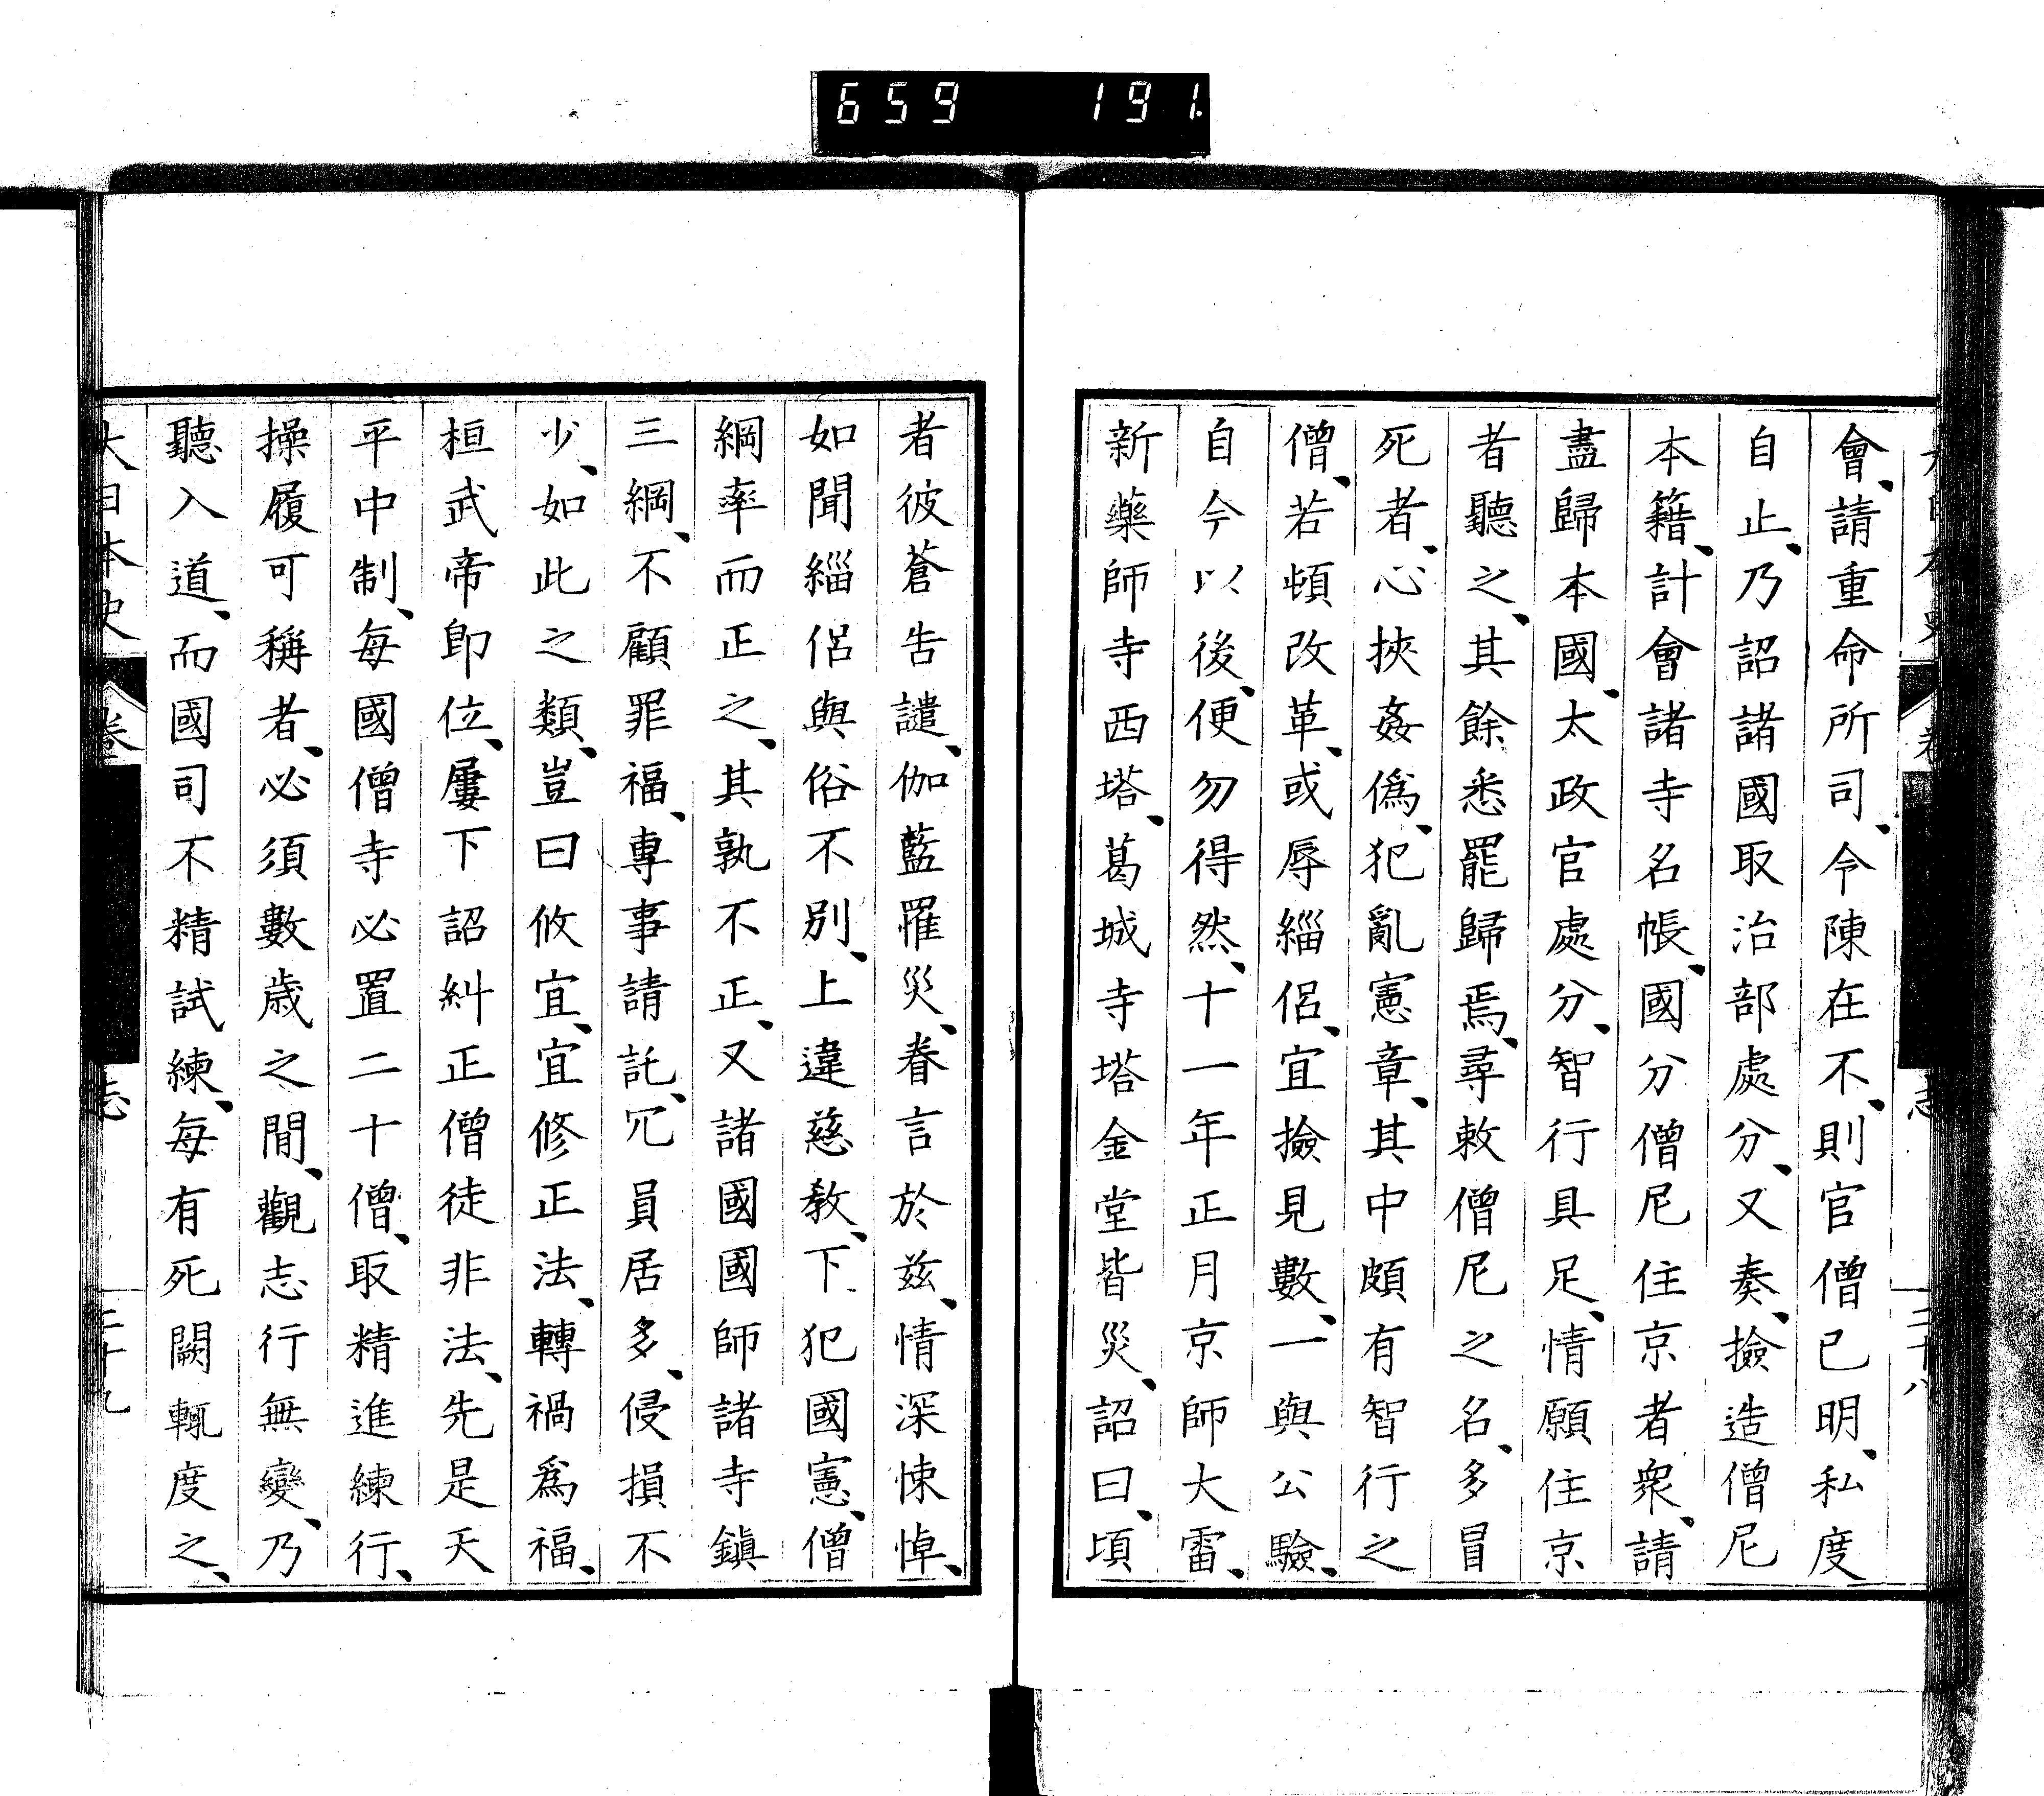 659 191
會、請重命所司、令陳在不、則官僧已明、私度
自止、乃詔諸國取治部處分、又奏、撿造僧尼
本籍、計會諸寺名帳、國分僧尼住京者衆、請
盡歸本國、太政官處分、智行具足、情願住京
者聽之、其餘悉罷歸焉、尋敕僧尼之名、多冒
死者、心挾姦僞、犯亂憲章、其中頗有智行之
僧、若頓改革、或辱緇侶、宜撿見數、一與公驗、
自今以後、便勿得然、十一年正月京師大雷、
新藥師寺西塔、葛城寺塔金堂皆災、詔曰、頃
者彼蒼告譴、伽藍罹災、眷言於兹、情深悚悼、
如聞緇侶與俗不別、上違慈教、下犯國憲、僧
綱率而正之、其孰不正、又諸國國師諸寺鎭
三綱、不顧罪福、專事請託、冗員居多、侵損不
少、如此之類、豈曰攸宜、宜修正法、轉禍爲福、
桓武帝即位、屢下詔糾正僧徒非法、先是天
平中制、每國僧寺必置二十僧、取精進練行、
操履可稱者、必須數歲之閒、觀志行無變、乃
聽入道、而國司不精試練、每有死闕輒度之、
大日本史 卷 志 二十九